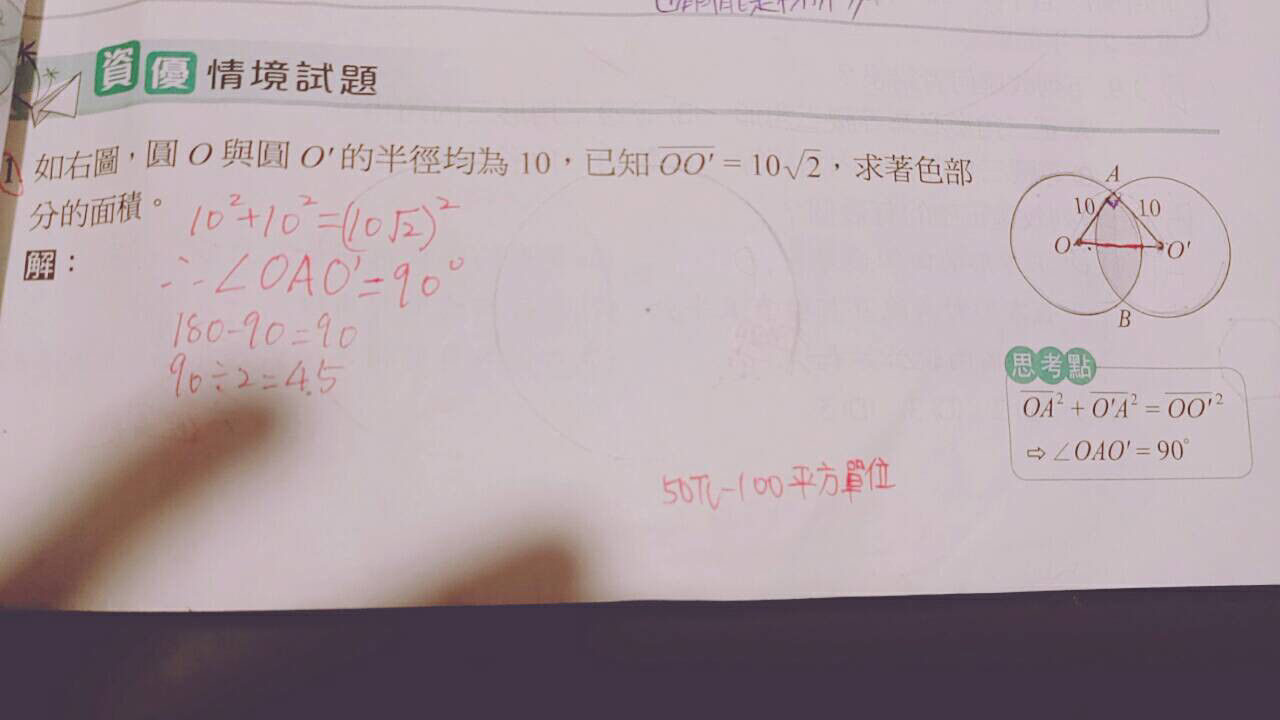 資優 情境試題
1 如右圖，圓 O 與圓 O' 的半徑均為 10，已知 OO' = 10√2，求著色部
分的面積。
解：
10²+10²=(10√2)²
∴∠OAO'=90°
180-90=90
90÷2=45
50π-100平方單位
A
10 10
O O'
B
思考點
OA² + O'A² = OO'²
⇨ ∠OAO' = 90°